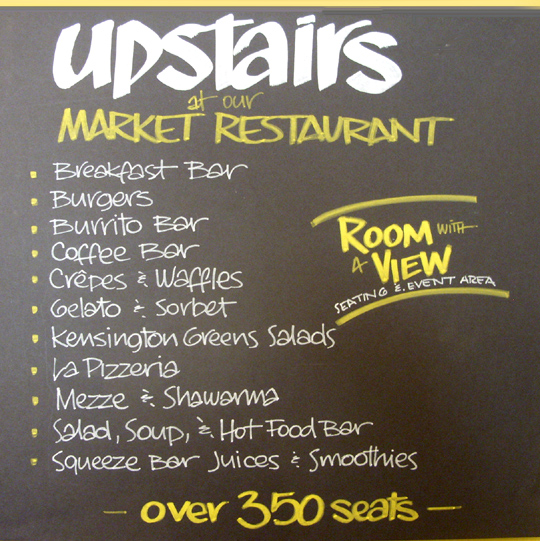 upstairs
at our
MARKET RESTAURANT
• Breakfast Bar
• Burgers
• Burrito Bar
• Coffee Bar
• Crêpes & Waffles
• Gelato & Sorbet
• Kensington Greens Salads
• La Pizzeria
• Mezze & Shawarma
• Salad, Soup, & Hot Food Bar
• Squeeze Bar Juices & Smoothies
ROOM WITH
A VIEW
SEATING & EVENT AREA
— over 350 seats —